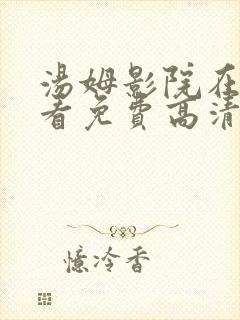 湯姆影院在
看免費高清
憶冷香